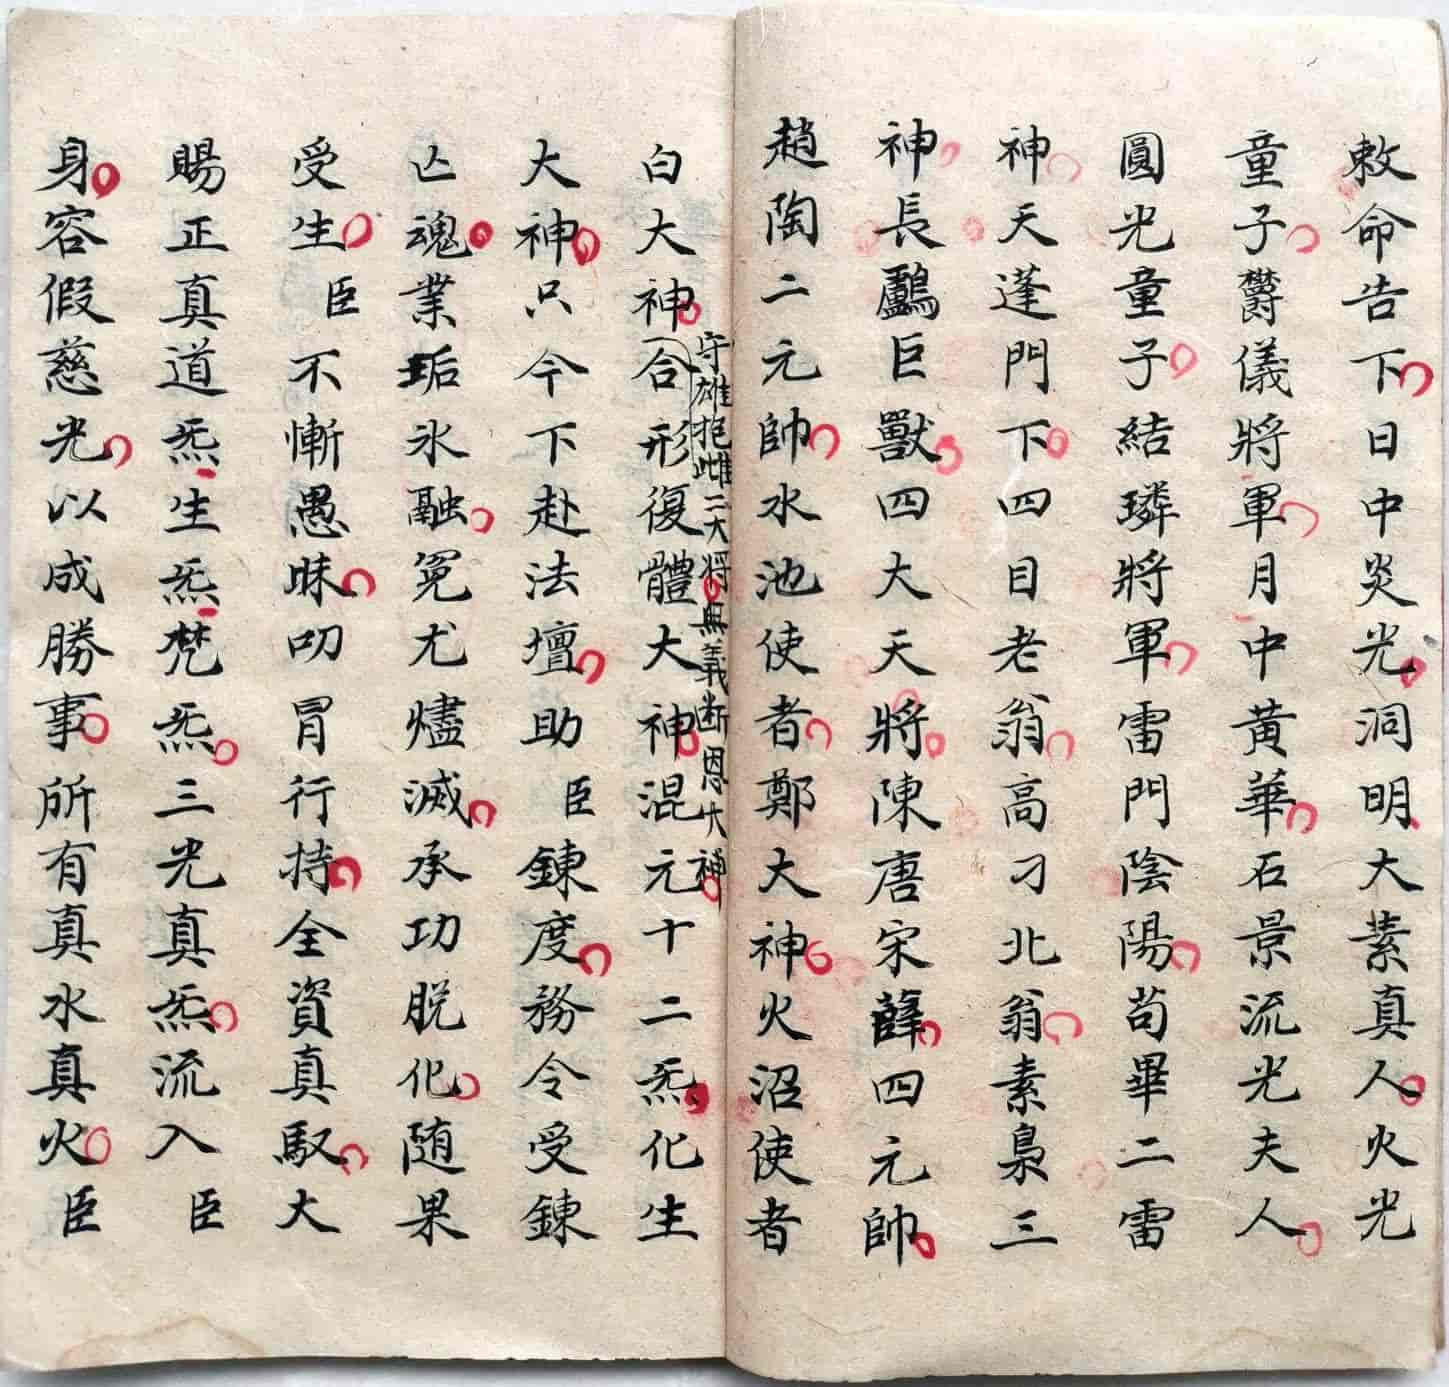 敕命告下日中炎光洞明大素真人火光
童子欝儀將軍月中黃華石景流光夫人
圓光童子結璘將軍雷門陰陽苟畢二雷
神天蓬門下四目老翁高刁北翁素梟三
神長鸕巨獸四大天將陳唐宋薛四元帥
趙陶二元帥水池使者鄭大神火沼使者
守雄抱雌二大將無義断恩大神
白大神合形復體大神混元十二炁化生
大神只今下赴法壇助臣鍊度務令受鍊
亾魂業垢氷融冤尤燼滅承功脱化随果
受生臣不慚愚昧叨冐行持全資真馭大
賜正真道炁生炁梵炁三光真炁流入臣
身容假慈光以成勝事所有真水真火臣